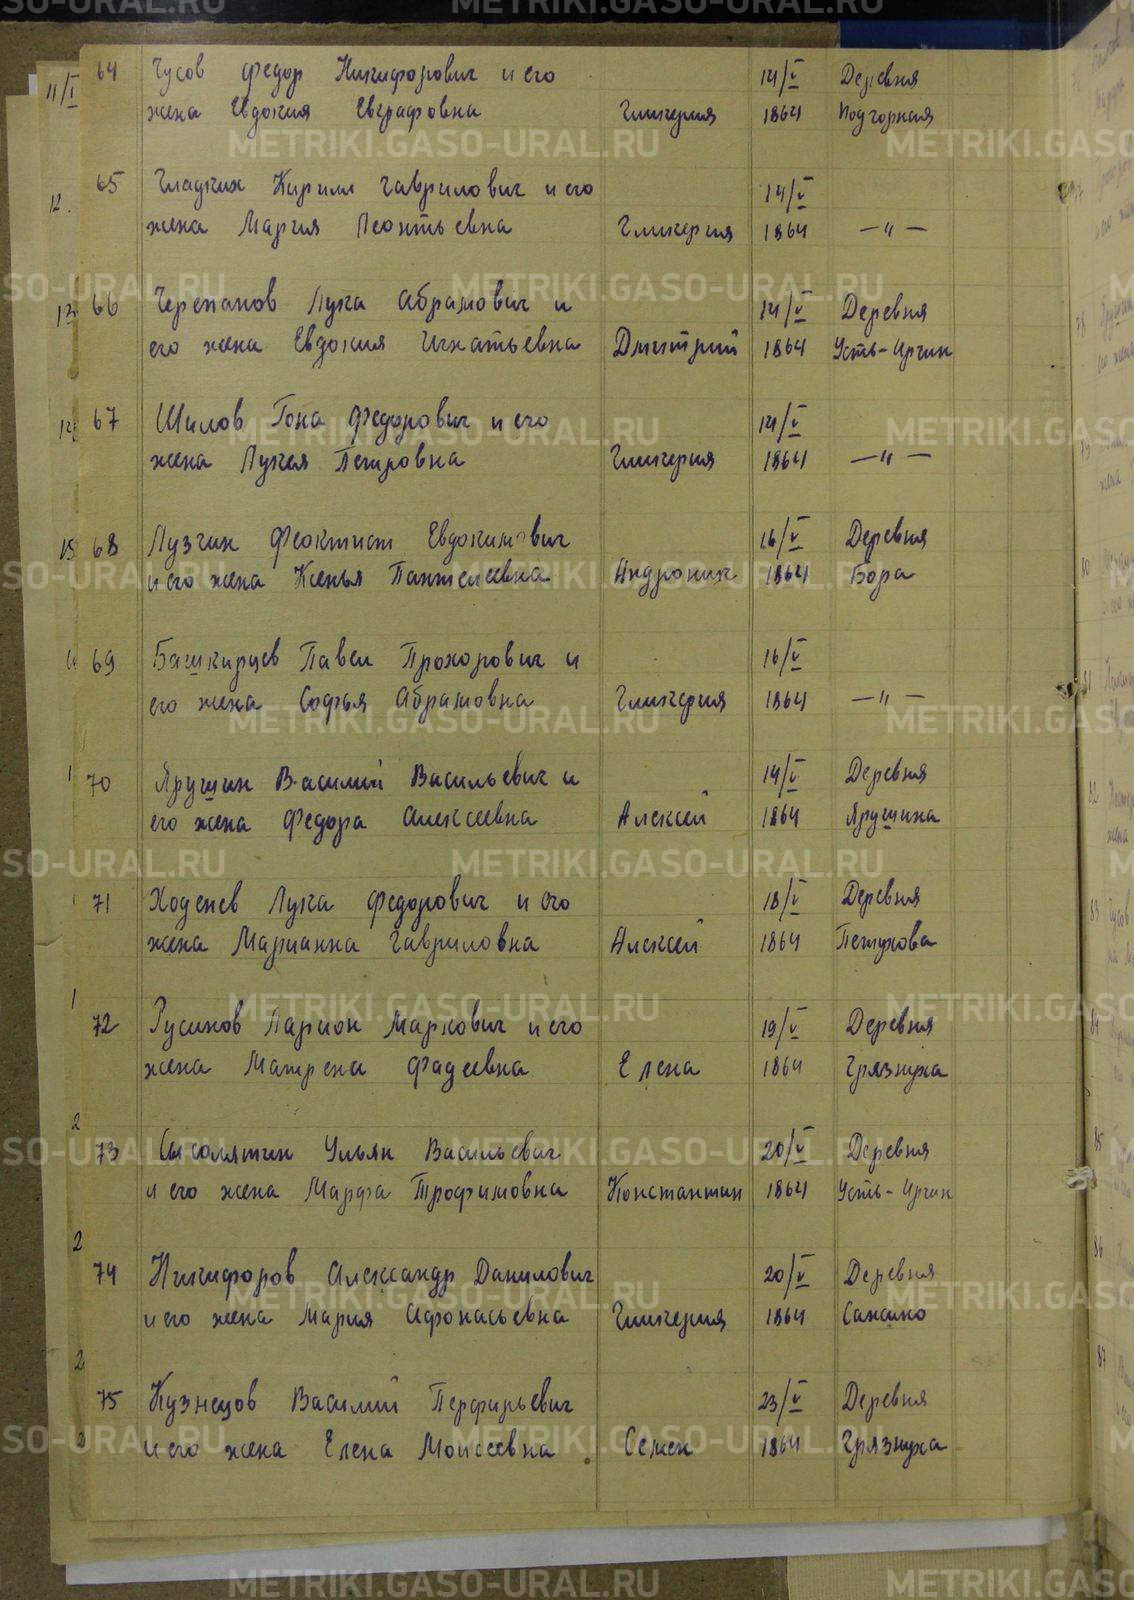 64 Чусов Федор Никифорович и его 14/V Деревня
жена Евдокия Евграфовна Гликерия 1864 Подгорная
65 Гладких Кирилл Гаврилович и его 14/V
жена Мария Леонтьевна Гликерия 1864 —"—
66 Черепанов Лука Абрамович и 14/V Деревня
его жена Евдокия Игнатьевна Дмитрий 1864 Усть-Иргин
67 Шилов Иона Федорович и его 14/V
жена Лукея Петровна Гликерия 1864 —"—
68 Лузгин Феоктист Евдокимович 16/V Деревня
и его жена Ксенья Пантелеевна Андроник 1864 Бора
69 Башкирцев Павел Прохорович и 16/V
его жена Софья Абрамовна Гликерия 1864 —"—
70 Ярушин Василий Васильевич и 14/V Деревня
его жена Федора Алексеевна Алексей 1864 Ярушина
71 Ходенев Лука Федорович и его 18/V Деревня
жена Марианна Гавриловна Алексей 1864 Петухова
72 Русинов Ларион Маркович и его 19/V Деревня
жена Матрена Фадеевна Елена 1864 Грязнуха
73 Сысолятин Ульян Васильевич 20/V Деревня
и его жена Марфа Трофимовна Константин 1864 Усть-Иргин
74 Никифоров Александр Данилович 20/V Деревня
и его жена Мария Афонасьевна Гликерия 1864 Сажино
75 Кузнецов Василий Перфирьевич 23/V Деревня
и его жена Елена Моисеевна Семен 1864 Грязнуха
METRIKI.GASO-URAL.RU